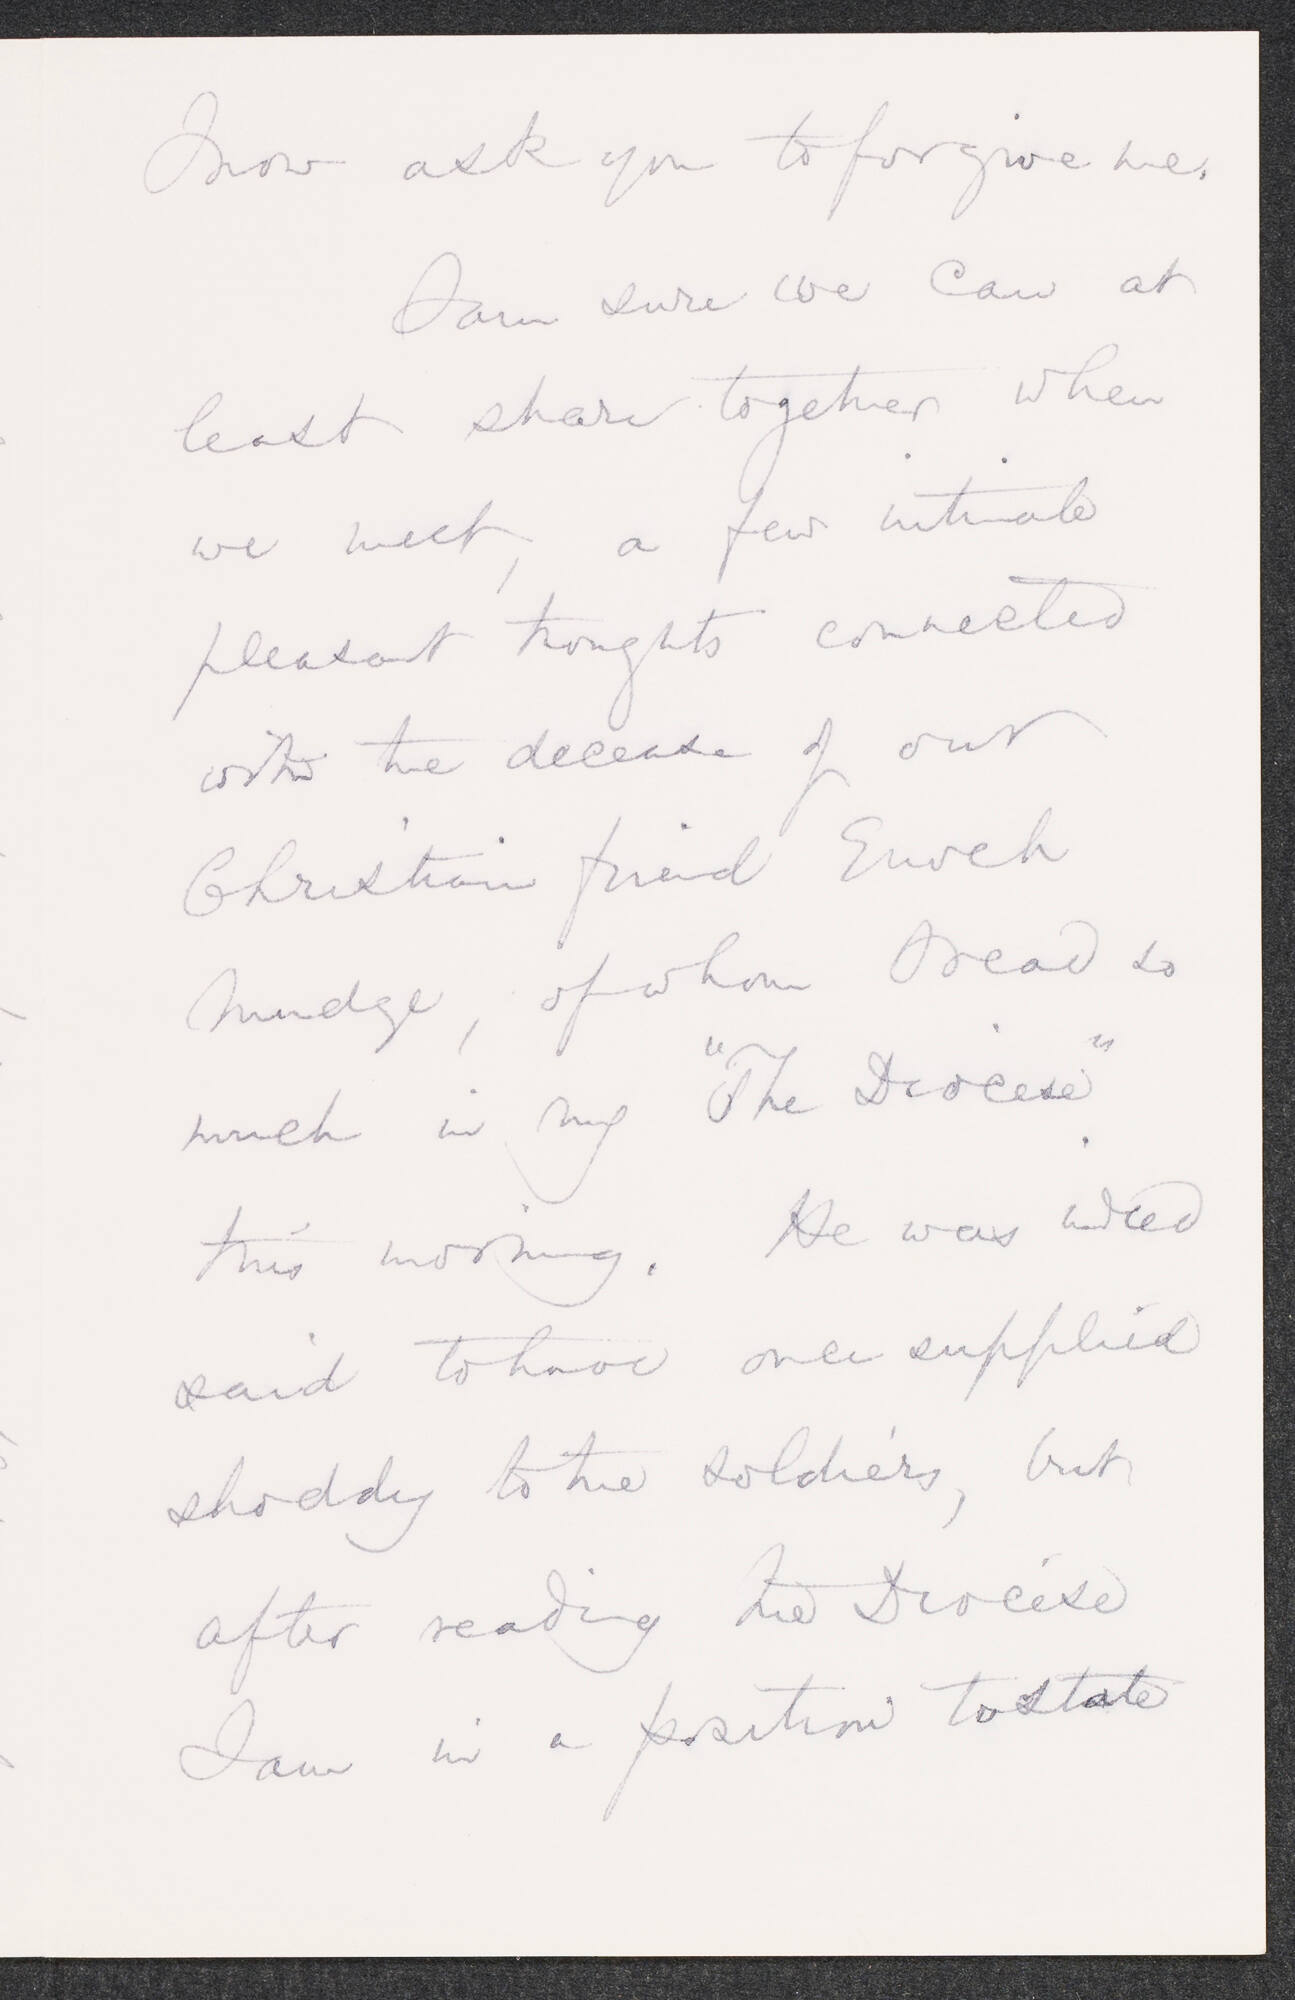 I now ask you to forgive me.
I am sure we can at
least share together when
we meet, a few intimate
pleasant thoughts connected
with the decease of our
Christian friend Enoch
Mudge, of whom I read so
much in my "The Diocese"
this morning. He was indeed
said to have once supplied
shoddy to the soldiers, but
after reading the Diocese
I am in a position to state